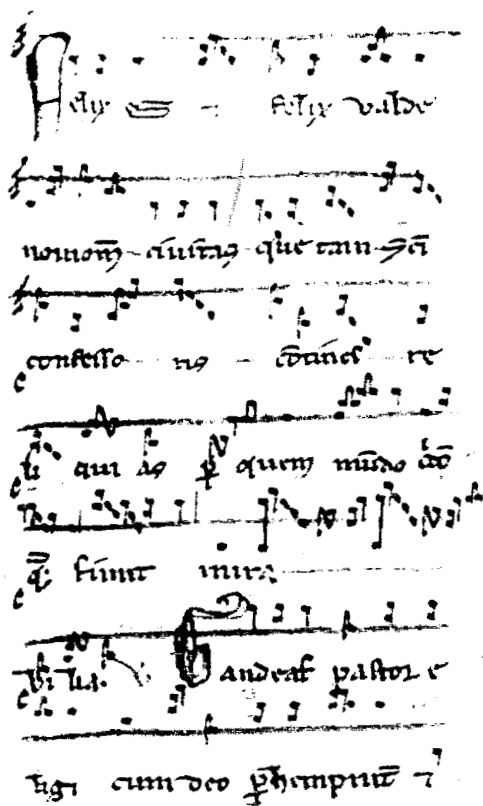 Felix es felix valde
nouiom̄ ciuitas que tam sc̄i
confesso ris c̄tines re
li qui as ꝑ quem mūdo
q̄ fiunt mira
bi lia. Gaudeas pastor e
ligi cum deo